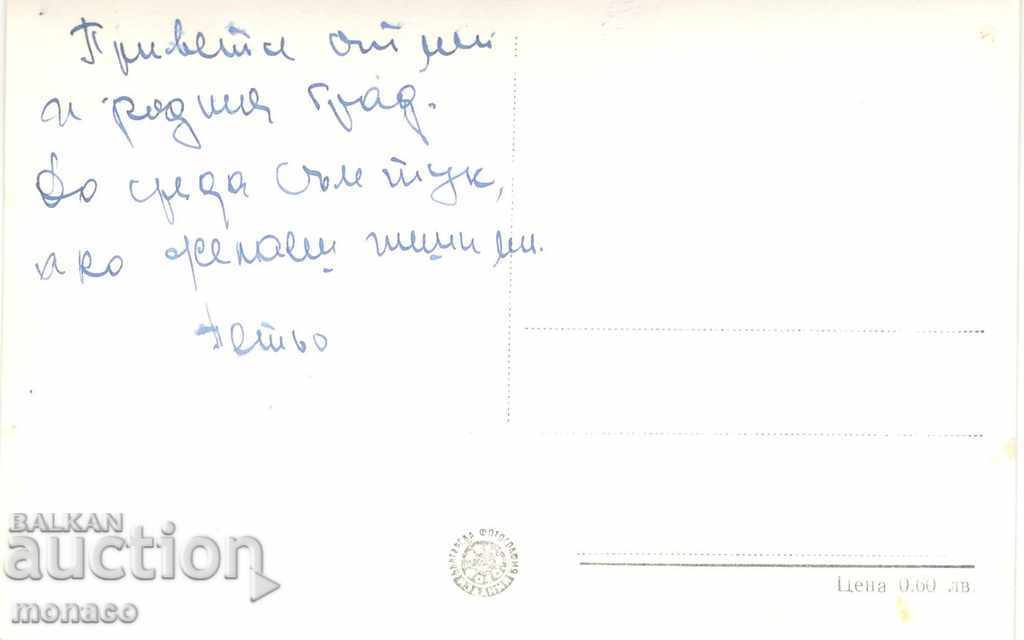 Привети от мен
и родния град.
До сряда съм тук,
ако желаеш пиши ми.
Петьо
БЪЛГАРСКА ФОТОГРАФИЯ
Цена 0.60 лв.
BALKAN
auction
monaco